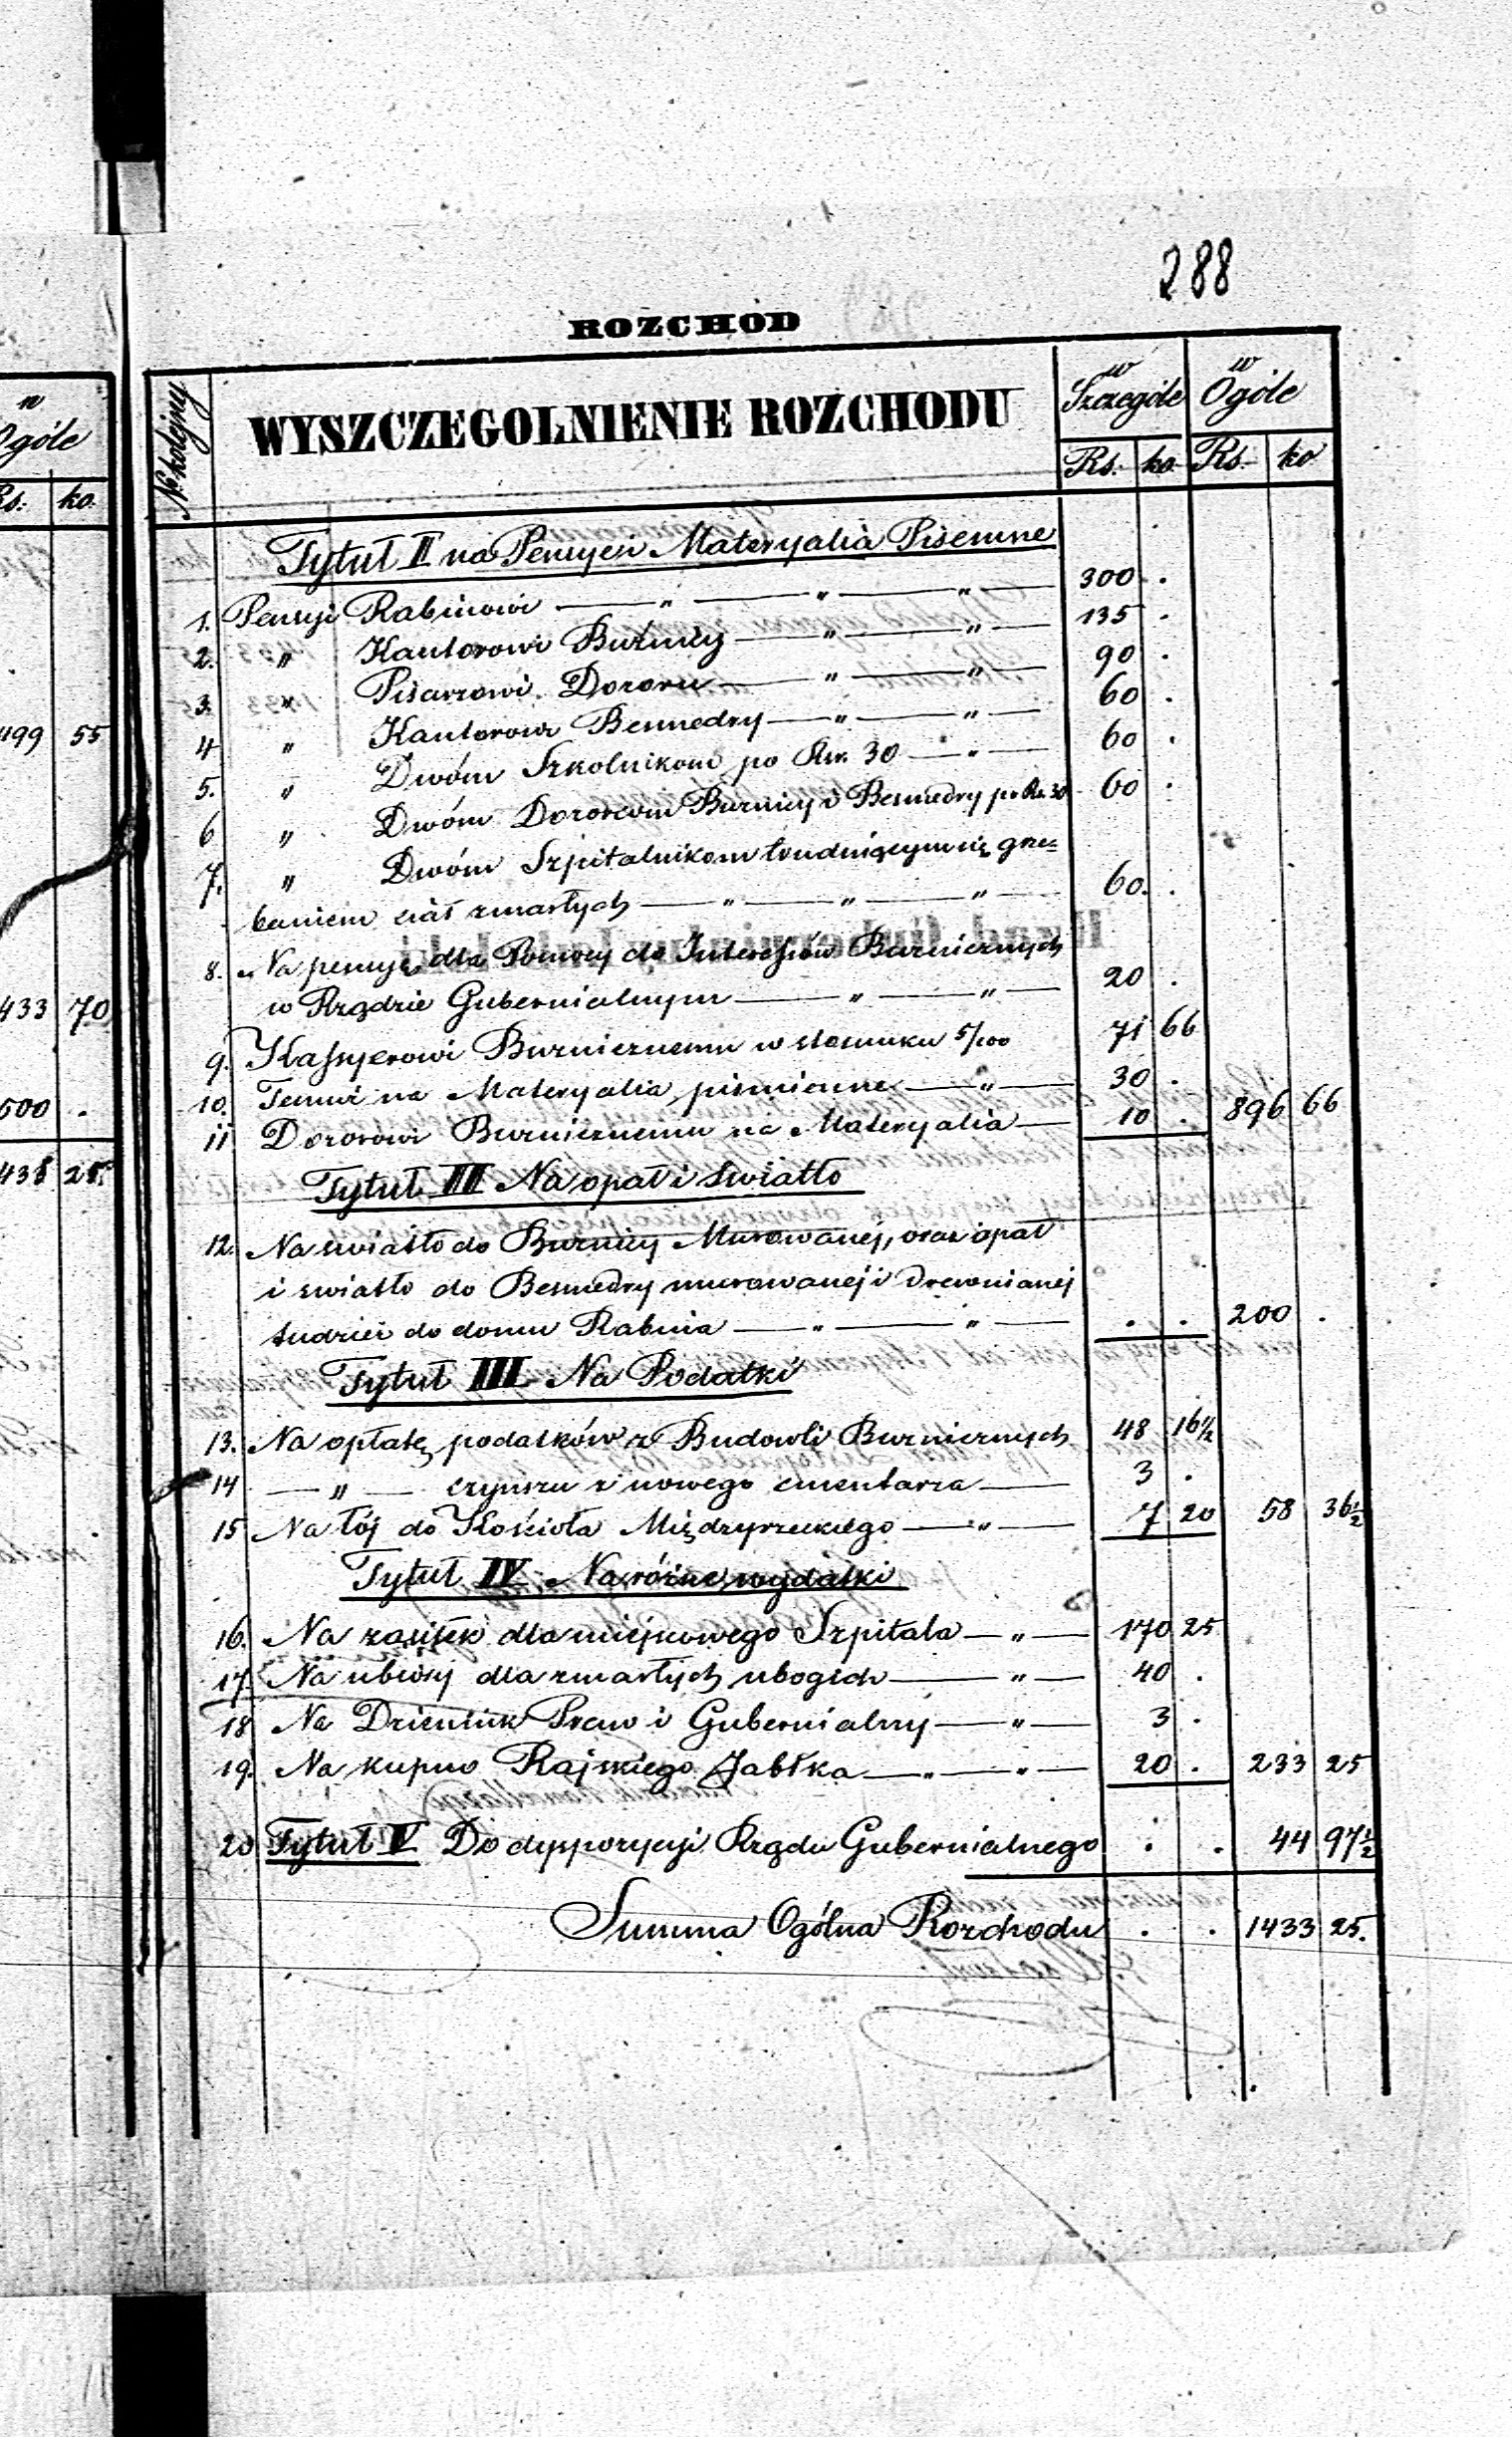 288
ROZCHOD
w
Ogóle
Rs: ko.
499 55
433 70
500 .
438 25.
№ kolejny WYSZCZEGOLNIENIE ROZCHODU w Szczególe w Ogóle
Rs: ko. Rs. ko
Tytuł II na Pensye i Materyalia Pisemne
1. Pensyi Rabinowi — " — " — " — 300 .
2. " Kantorowi Buźnicy — " — " — 135 .
3. " Pisarzowi Dozoru — " — " — 90 .
4 " Kantorowi Besmedry — " — " — 60 .
5. " Dwóm Szkolnikom po Rsr. 30 — " — 60 .
6 " Dwóm Dozorcom Buznicy i Besmedry po Rs. 30 60 .
7. " Dwóm Szpitalnikom trudniącym się grze=
baniem ciał zmarłych — " — " — " — 60. .
8. Na pensyę dla Pomocy do Interessów Buzniczych
w Rządzie Gubernialnym — " — " — 20 .
9. Kassyerowi Buznicznemu w stosunku 5/100 71 66
10. Temuż na Materyalia piśmienne — " — 30 .
11 Dozorowi Buznicznemu na Materyalia — 10 . 896 66
Tytuł III Na opał i swiatło
12. Na swiatło do Buznicy Murowanej, oraz opał
i swiatło do Besmedry murowanej i Drewnianej
tudzież do domu Rabina — " — " — . . 200 .
Tytuł III Na Podatki
13. Na opłatę podatków z Budowli Buznicznych 48 16 1/2
14 — " — czynszu z nowego cmentarza — 3 .
15 Na łój do Kościoła Międzyrzeckiego — " — 7 20 58 36 1/2
Tytuł IV Na różne wydatki
16. Na zasiłek dla miejscowego Szpitala — " — 170 25
17. Na ubiory dla zmarłych ubogich — " — 40 .
18 Na Dziennik Praw i Gubernialny — " — 3 .
19. Na kupno Rajskiego Jabłka — " — " — 20 . 233 25
20 Tytuł V Do dyspozycyi Rządu Gubernialnego . . 44 97 1/2
Summa Ogólna Rozchodu . . 1433 25.